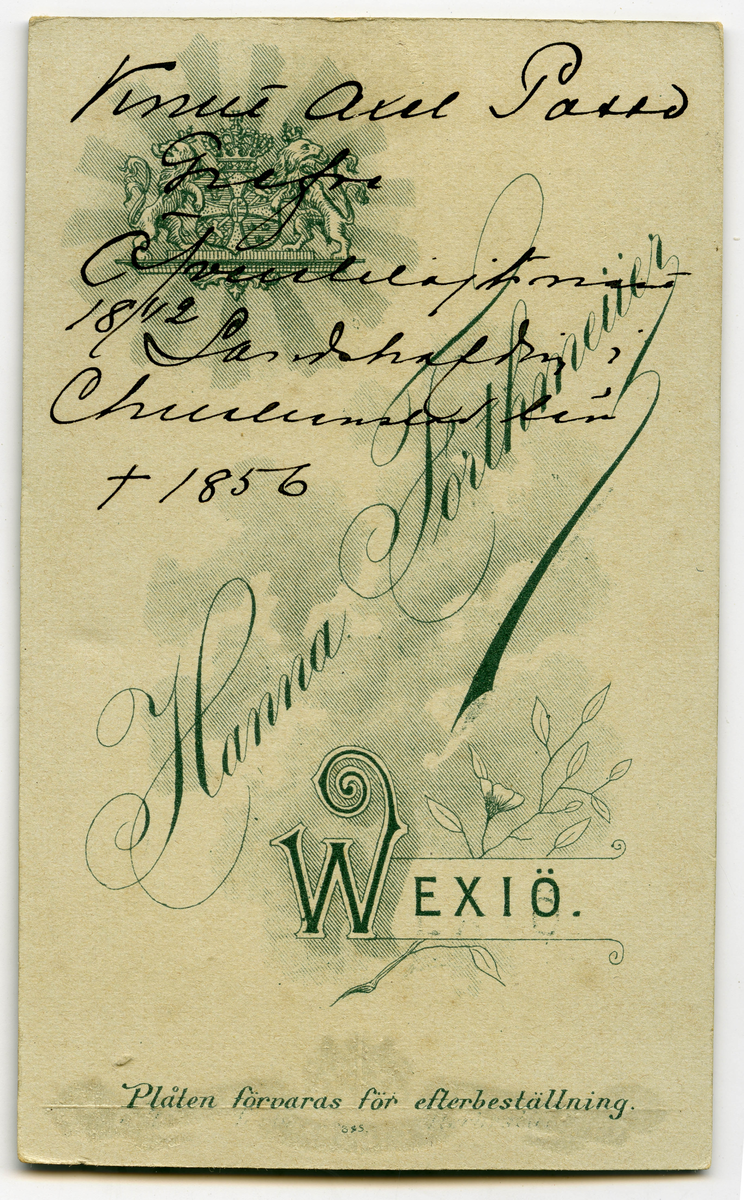 Knut Axel Posse
Grefve
Öfverstelöjtnant
18/12 Landshöfding i
Christianstad län
† 1856
Hanna Forthmeiier
WEXIÖ.
Plåten förvaras för efterbeställning.